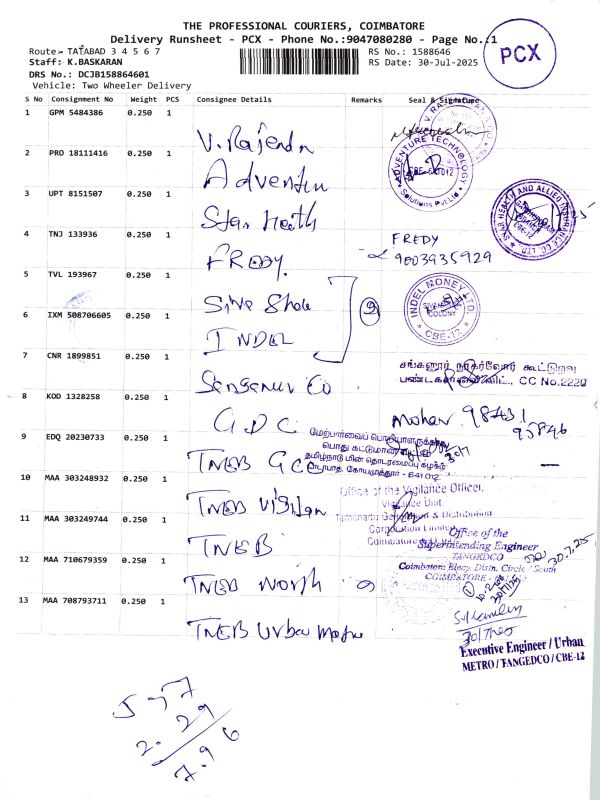 THE PROFESSIONAL COURIERS, COIMBATORE
Delivery Runsheet - PCX - Phone No.:9047080280 - Page No.:1
PCX
Route:- TATABAD 3 4 5 6 7
RS No.: 1588646
Staff: K.BASKARAN
RS Date: 30-Jul-2025
DRS No.: DCJB158864601
Vehicle: Two Wheeler Delivery
S No Consignment No Weight PCS Consignee Details Remarks Seal & Signature
1 GPM 5484386 0.250 1 V. Rajendn
2 PRO 18111416 0.250 1 Adventur
ADVENTURE TECHNOLOGY Solutions Pvt Ltd
3 UPT 8151507 0.250 1 Star Health
STAR HEALTH AND ALLIED INSURANCE CO. LTD.
CBE-12
4 TNJ 133936 0.250 1 FREDY. FREDY
9003935929
5 TVL 193967 0.250 1 Siva Shak
6 IXM 508706605 0.250 1 INDEL
INDEL MONEY LTD. COLONY CBE-12
7 CNR 1899851 0.250 1 Sanganur Co
சங்கனூர் நகர்வோர் கூட்டுறவு
CC No.2220
8 KOD 1328258 0.250 1 G.D.C Mohan 98431
95846
9 EDQ 20230733 0.250 1 TNEB GCC
மேற்பார்வைப் பொறியாளர்
பொது கட்டுமானம்
தமிழ்நாடு மின் தொடரமைப்பு கழகம்
டாடாபாத், கோயமுத்தூர் - 641 012.
30/7
10 MAA 303248932 0.250 1 TNEB Vigilan
Office of the Vigilance Officer,
Vigilance Unit,
Tamilnadu Generation & Distribution
Corporation Limited
Coimbatore
11 MAA 303249744 0.250 1 TNEB
Office of the
Superintending Engineer
TANGEDCO
Coimbatore Elecy. Distn. Circle / South
COIMBATORE - 641 012
30.7.25
12 MAA 710679359 0.250 1 TNEB North
30/7/25
13 MAA 708793711 0.250 1 TNEB Urban Metro
Executive Engineer / Urban
METRO / TANGEDCO / CBE-12
577
2.29
7.96